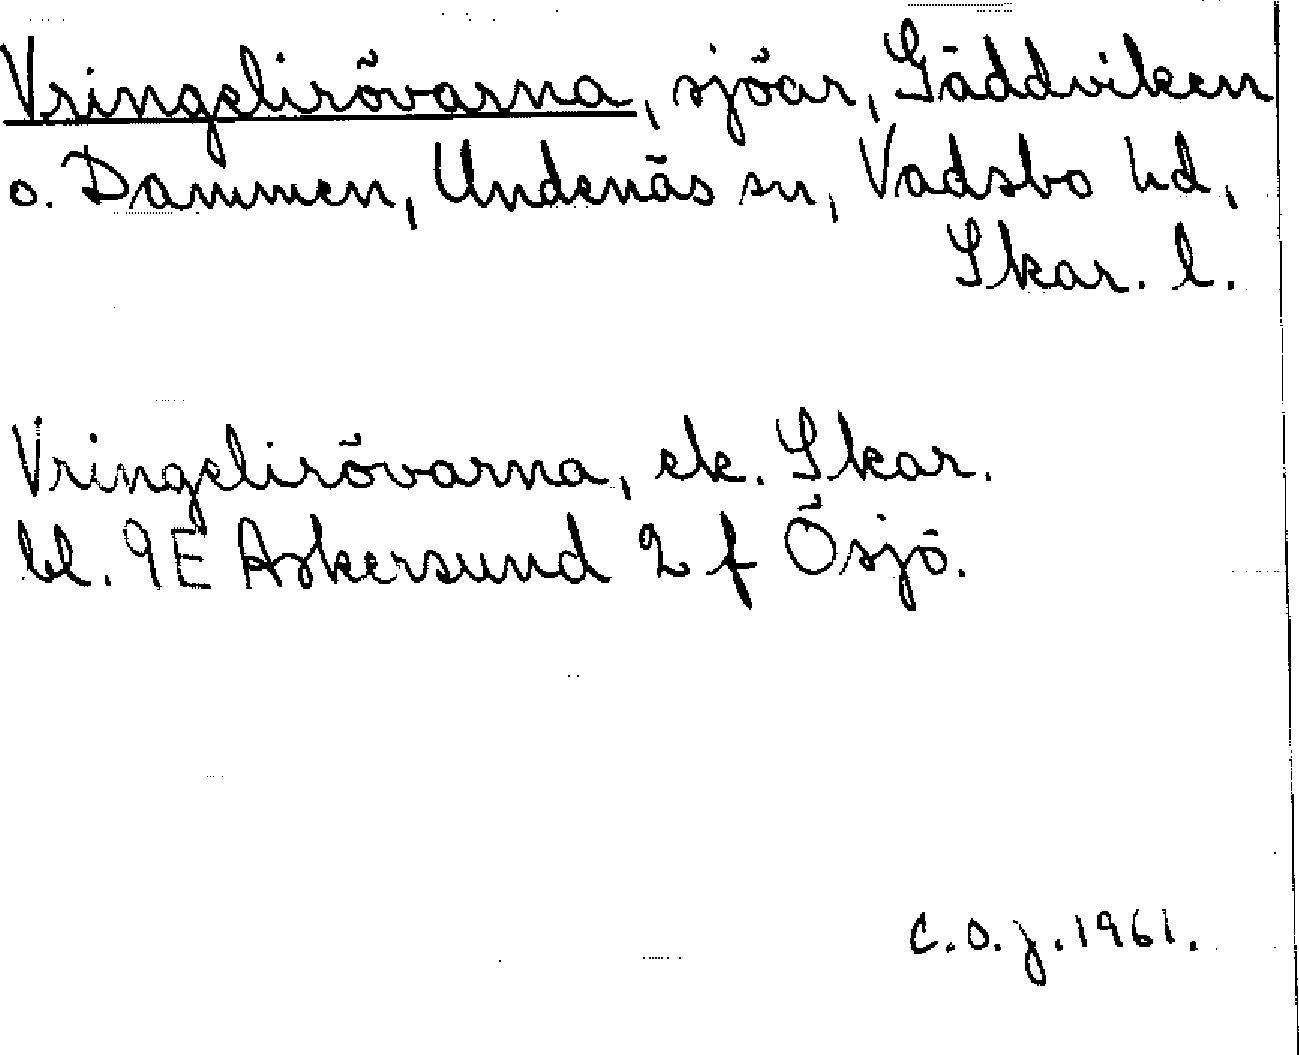 Vringelirövarna, sjöar, Gäddviken
o. Dammen, Undenäs sn, Vadsbo hd,
Skar. l.
Vringelirövarna, ek. Skar.
bl. 9E Askersund 2 f Ösjö.
C.O.J. 1961.